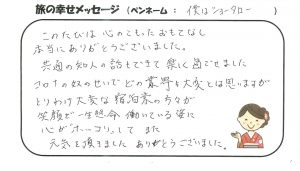 旅の幸せメッセージ (ペンネーム : 僕はショータロー )
このたびは 心のこもったおもてなし
本当にありがとうございました。
共通の知人の話もできて 楽しく過ごせました
コロナの奴のせいで どの業界も大変とは思いますが
とりわけ大変な 宿泊業の方々が
笑顔で一生懸命 働いている姿に
心が"ホッコリ"して また
元気を頂きました ありがとうございました。